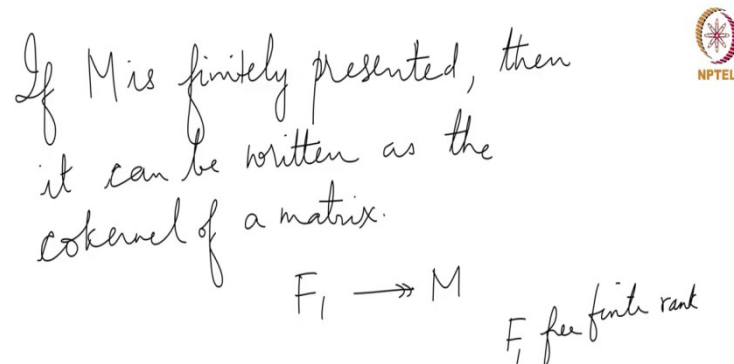 If M is finitely presented, then
it can be written as the
cokernel of a matrix.
F₁ ↠ M
F₁ free finite rank
NPTEL